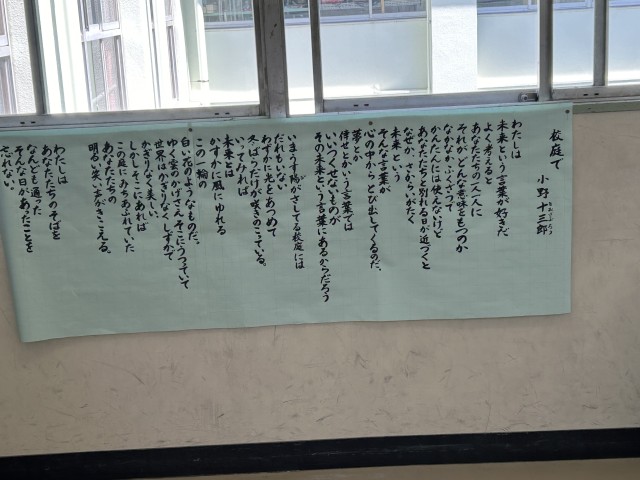 校庭で
小野十三郎
わたしは
未来という言葉が好きだ
よく考えると
あなたたちの一人一人に
それがどんな意味をもつのか
なかなかふかくて
かんたんには使えないけど
あなたたちと別れる日が近づくと
なぜか、やっぱりいがたく
未来という
そんな言葉が
心の中からとび出してくるのだ、
夢とか
倖せとかいう言葉では
いいつくせないものが
その未来という言葉にあるからだろう
いまうす陽がさしてる校庭には
だれもいない
わずかな光をあつめて
冬ばらだけが咲きのこっている。
いってみれば
未来とは
かすかに風にゆれる
この一輪の
白い花のようなものだ、
ゆく雲のかげさえそこにうつっていて
世界はかぎりなくしずかで
かぎりなく美しい、
しかしそこにあれば
この庭にみちあふれていた
あなたたちの
明るい笑い声がきこえる。
わたしは
あなたたちのそばを
なんども通った
そんな日があったことを
忘れない。